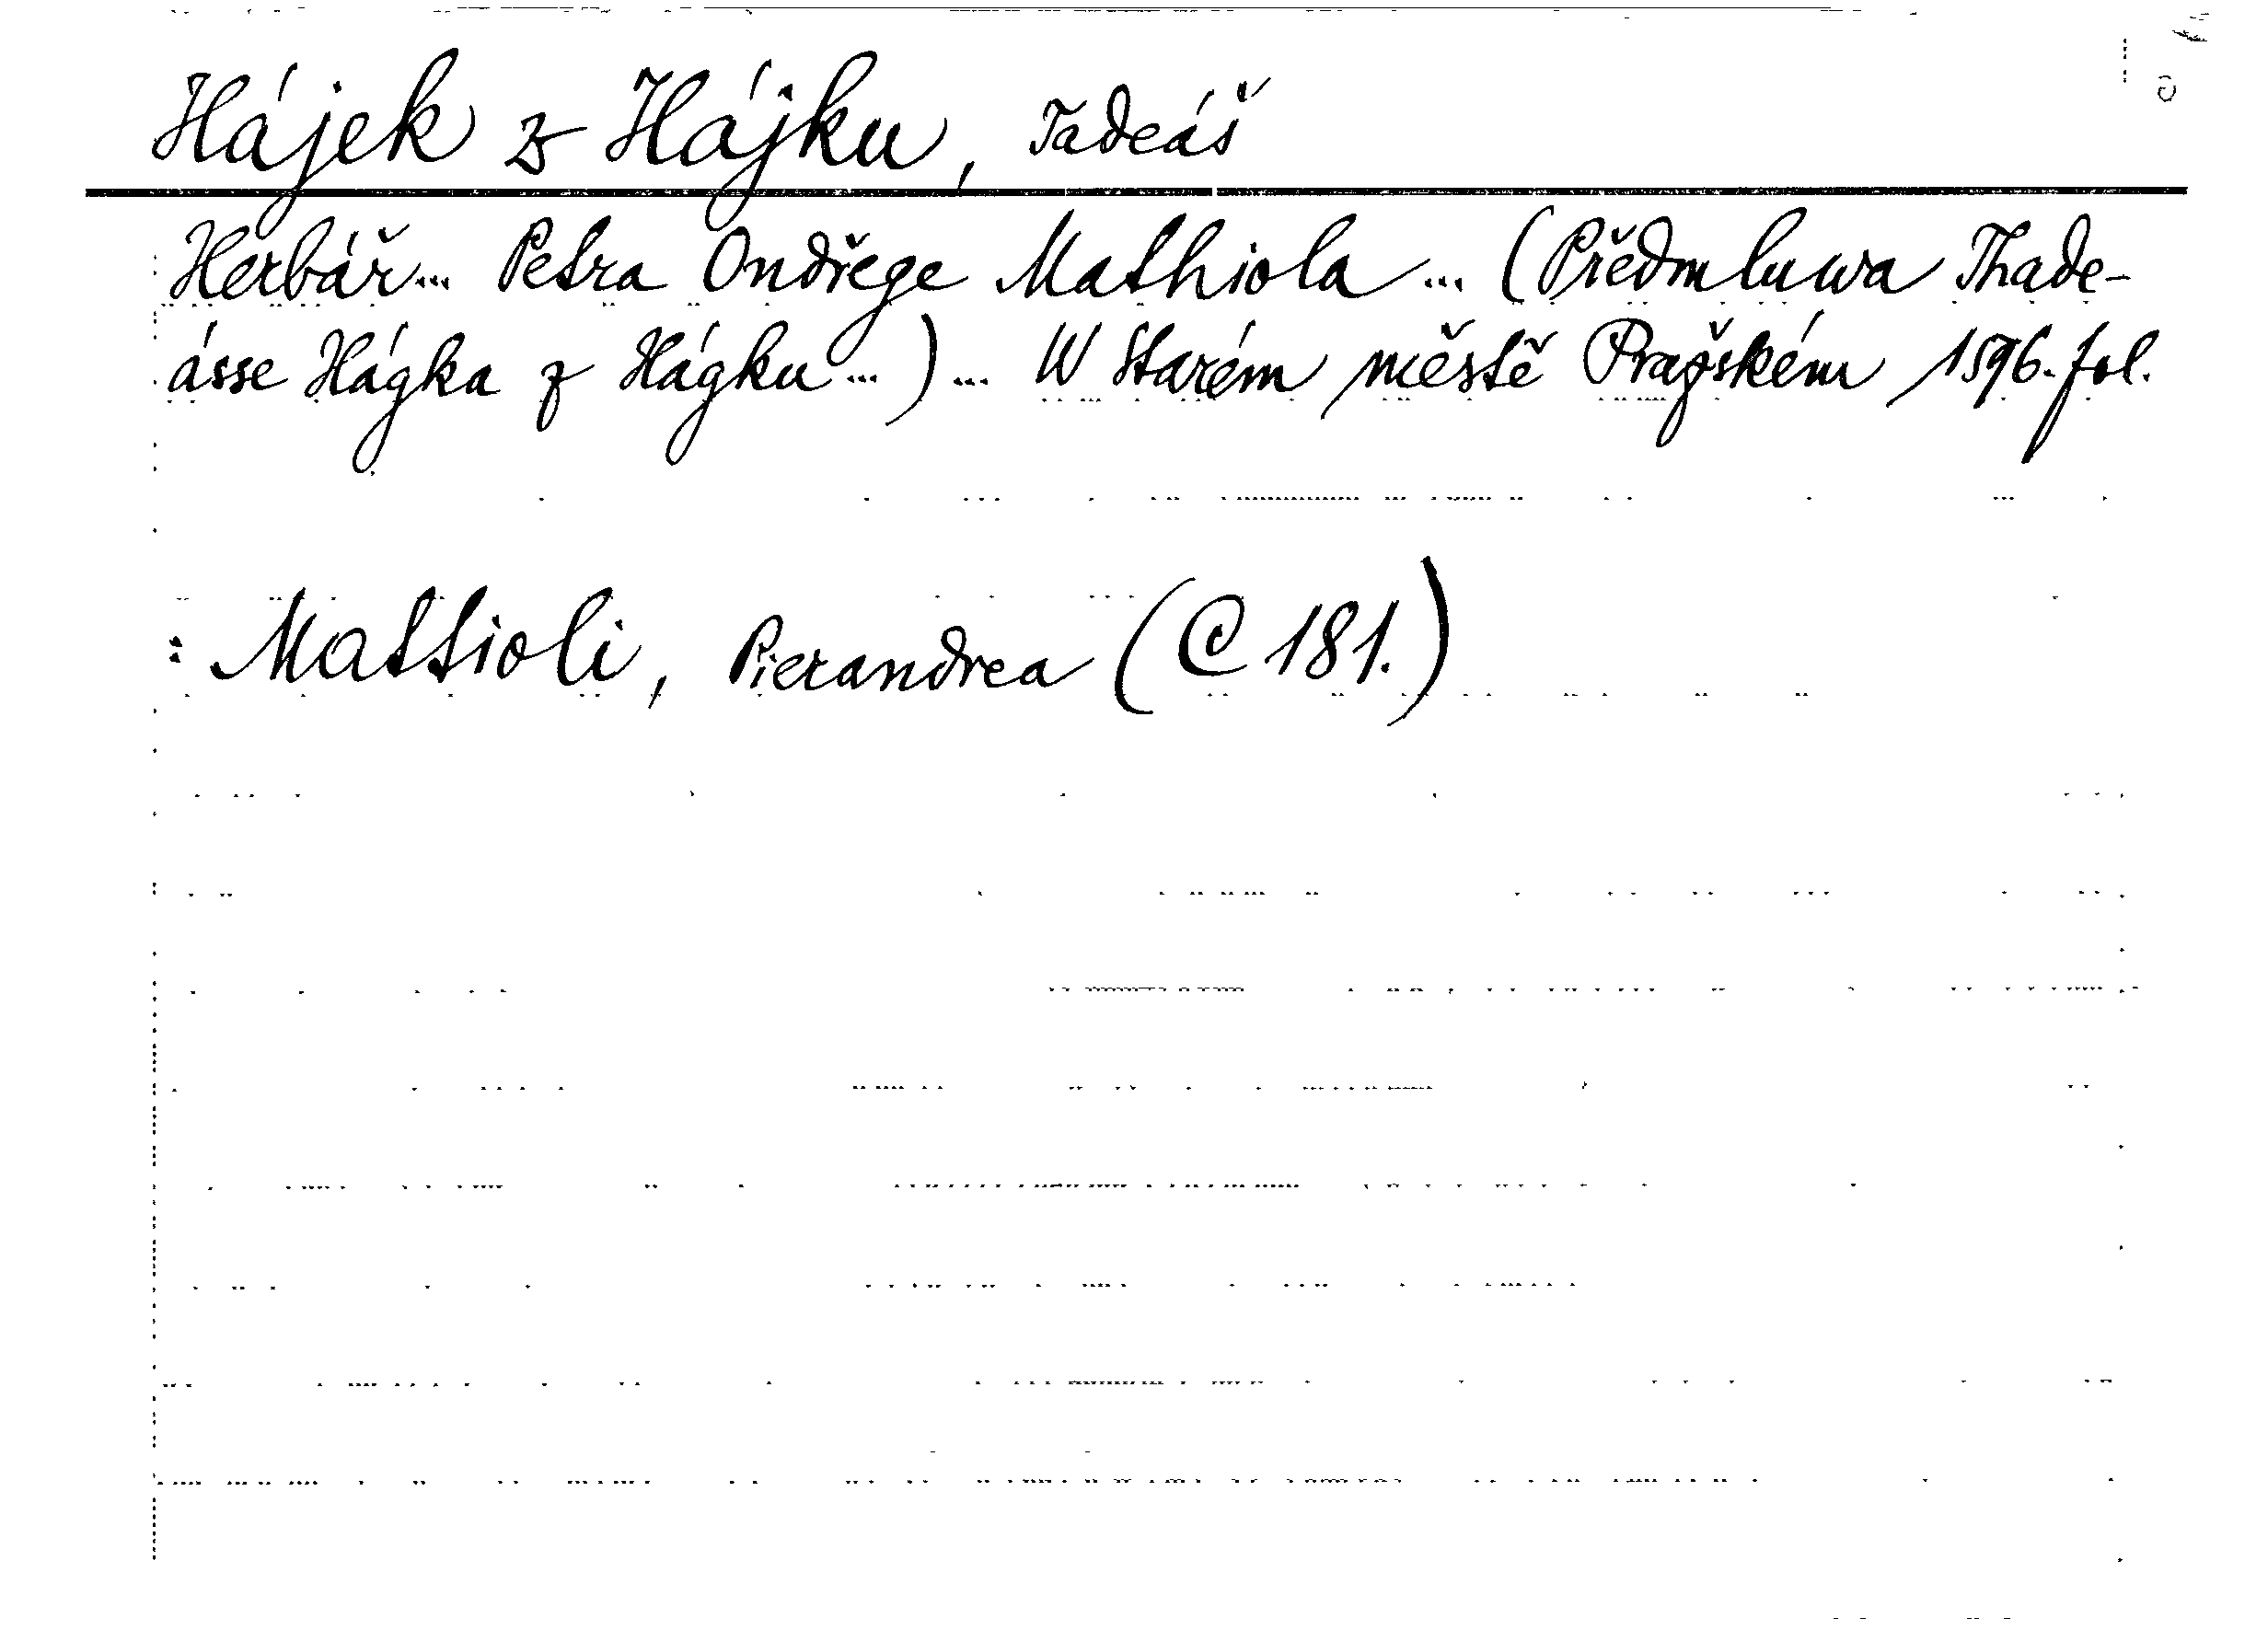 Hájek z Hájku, Tadeáš
Herbář... Petra Ondřege Mathiola... (Předmluwa Thade-
ásse Hágka z Hágku...)... W Starém městě Pražském 1596. fol.
: Mattioli, Pierandrea (C 181.)